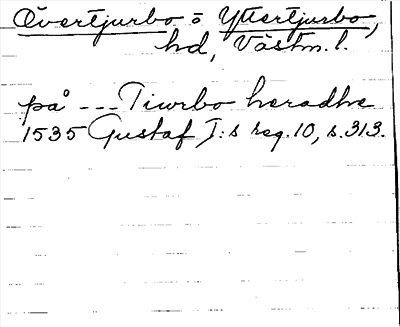 Övertjurbo = Yttertjurbo,
hd, Västm. l.
på --- Tiwrbo heradhe
1535 Gustaf I:s reg. 10, s. 313.